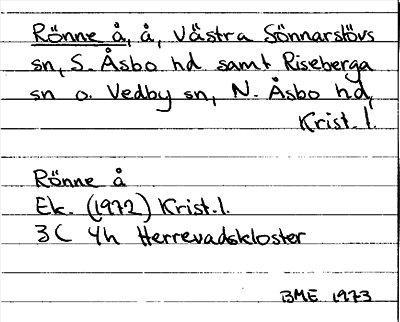 Rönne å, å, Västra Sönnarslövs
sn, S. Åsbo hd samt Riseberga
sn o. Vedby sn, N. Åsbo hd,
Krist. l.
Rönne å
Ek. (1972) Krist. l.
3C 4h Herrevadskloster
BME 1973